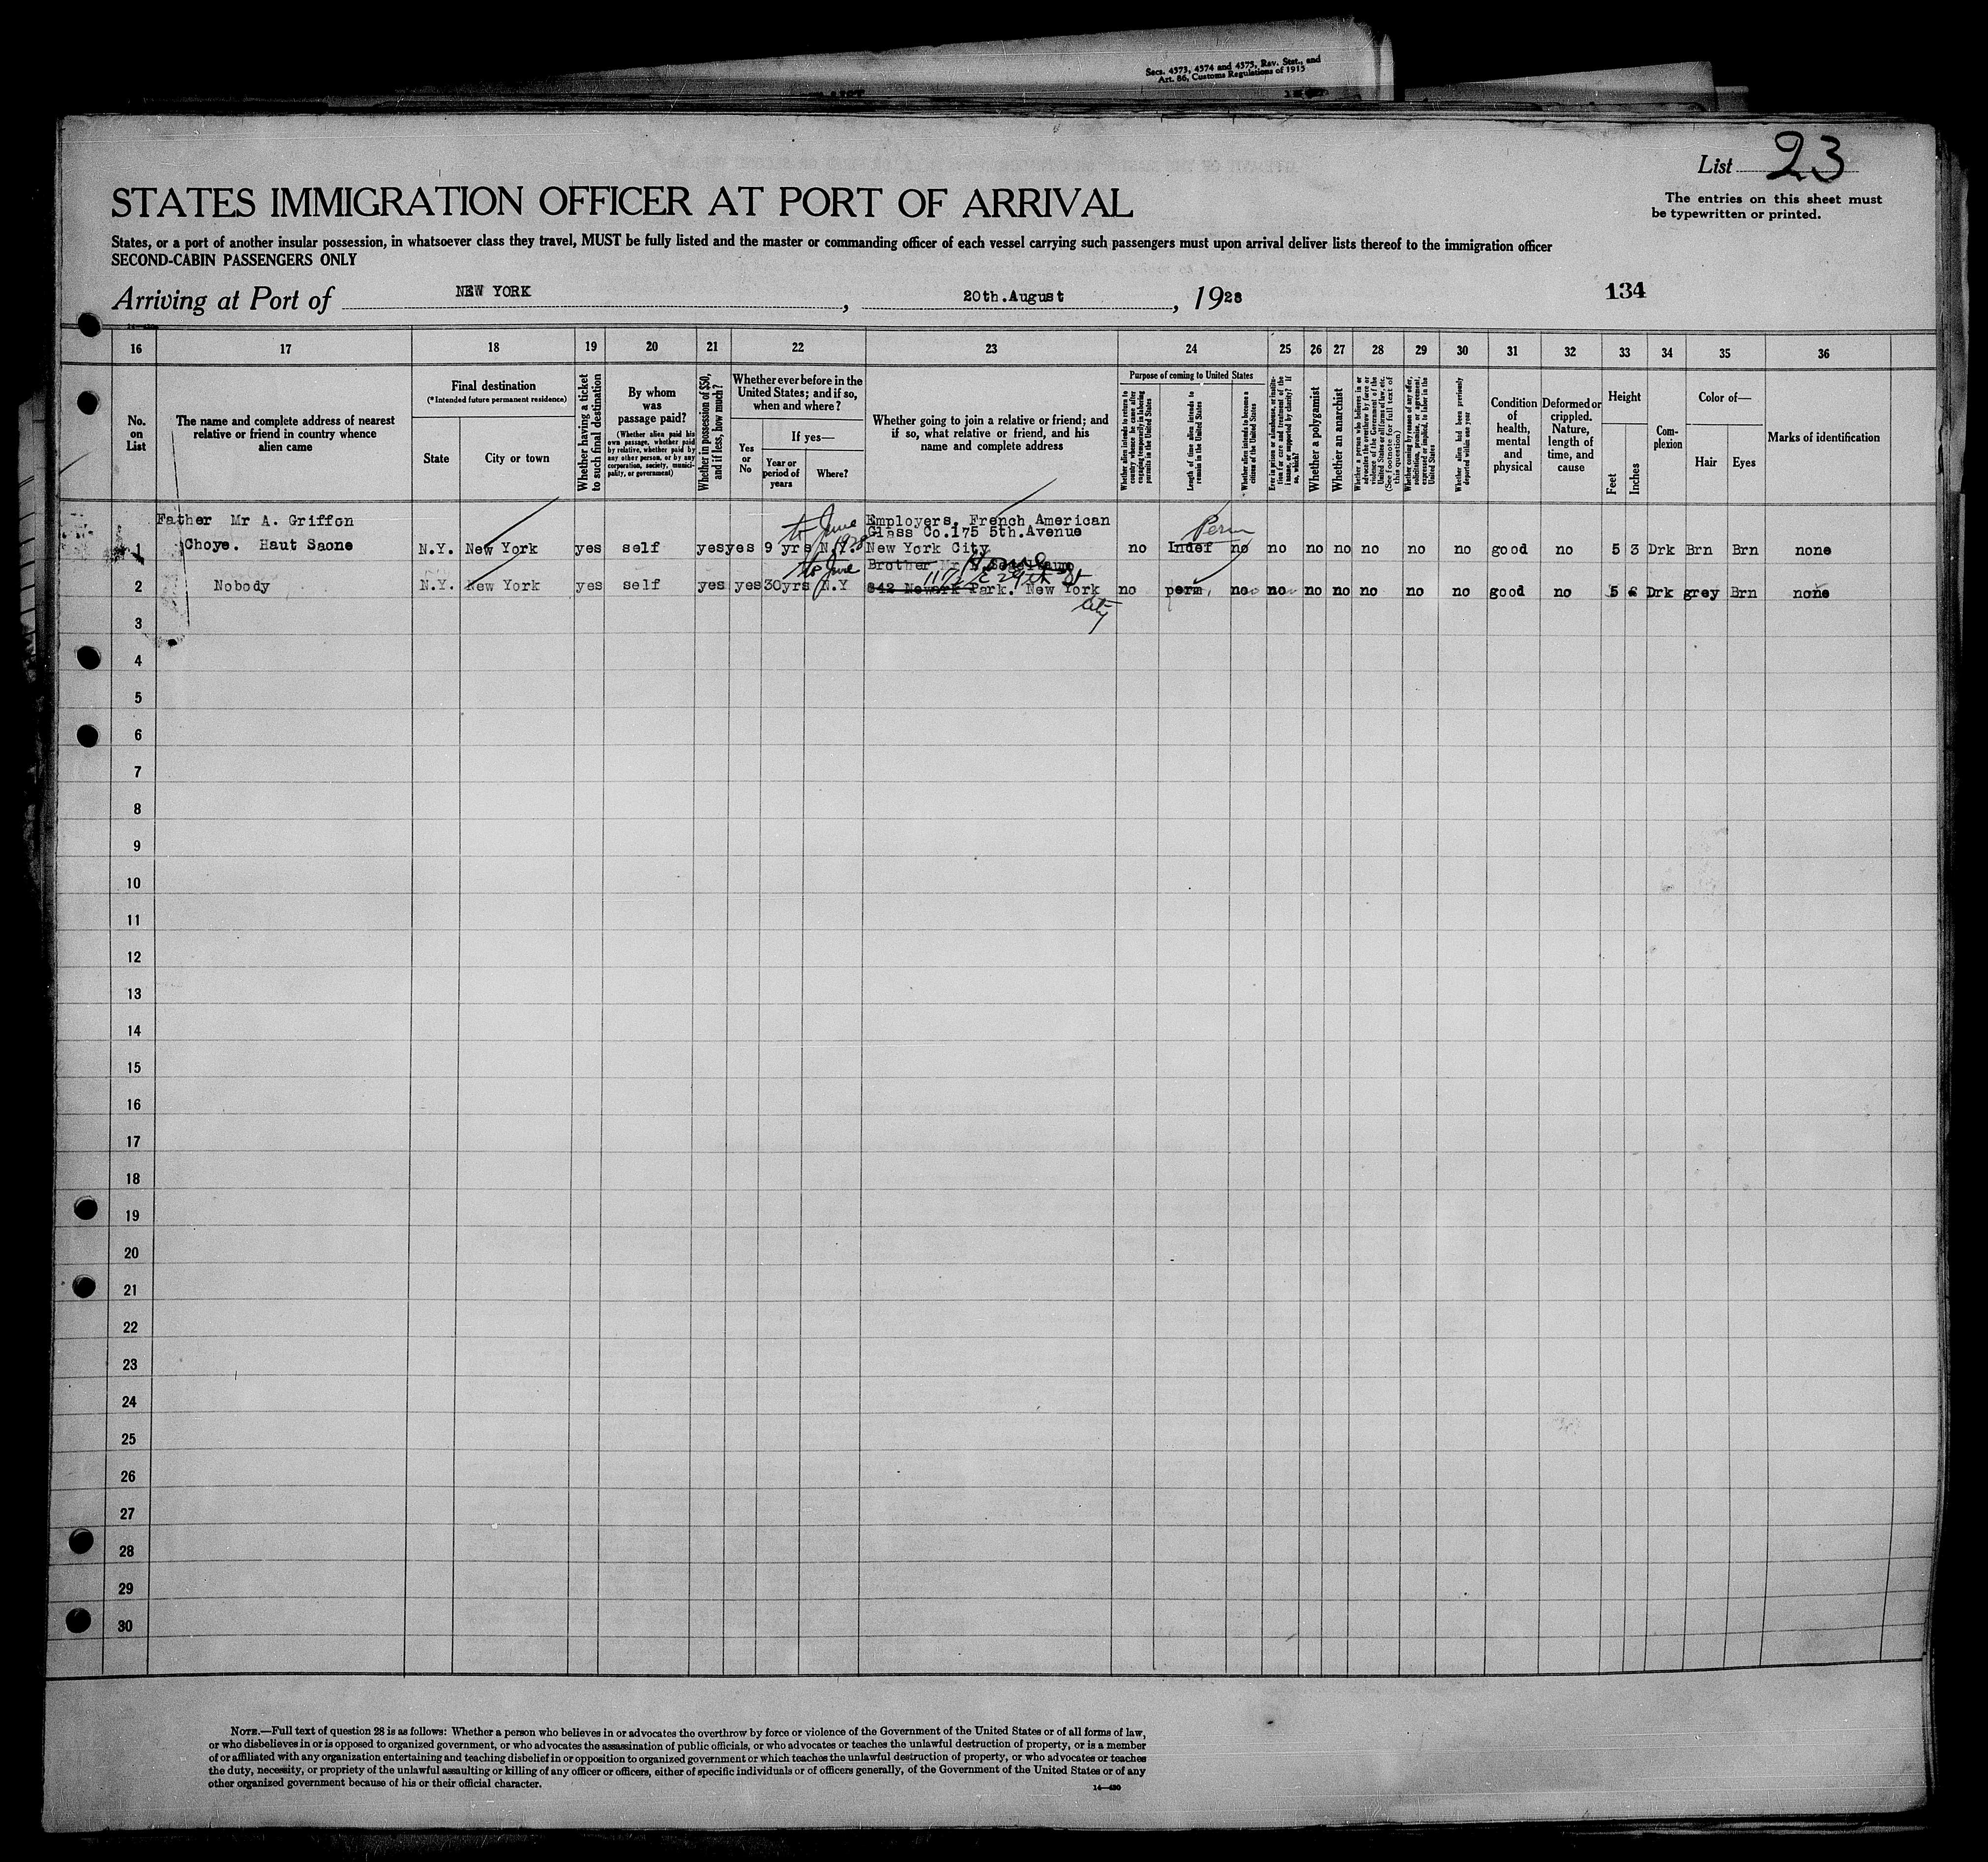 Secs. 4573, 4574 and 4575, Rev. Stat., and
Art. 86, Customs Regulations of 1915
List 23
The entries on this sheet must
be typewritten or printed.
STATES IMMIGRATION OFFICER AT PORT OF ARRIVAL
States, or a port of another insular possession, in whatsoever class they travel, MUST be fully listed and the master or commanding officer of each vessel carrying such passengers must upon arrival deliver lists thereof to the immigration officer
SECOND-CABIN PASSENGERS ONLY
Arriving at Port of NEW YORK, 20th.August, 1928
134
16 17 18 19 20 21 22 23 24 25 26 27 28 29 30 31 32 33 34 35 36
No. on List
The name and complete address of nearest
relative or friend in country whence
alien came
Final destination
(*Intended future permanent residence)
State
City or town
Whether having a ticket
to such final destination
By whom
was
passage paid?
(Whether alien paid his
own passage, whether paid
by relative, whether paid by
any other person, or by any
corporation, society, munici-
pality, or government)
Whether in possession of $50,
and if less, how much?
Whether ever before in the
United States; and if so,
when and where?
Yes
or
No
If yes—
Year or
period of
years
Where?
Whether going to join a relative or friend; and
if so, what relative or friend, and his
name and complete address
Purpose of coming to United States
Whether alien intends to return to
country whence he came after
engaging temporarily in laboring
pursuits in the United States
Length of time alien intends to
remain in the United States
Whether alien intends to become a
citizen of the United States
Ever in prison or almshouse, or institu-
tion for care and treatment of the
insane, or supported by charity? If
so, which?
Whether a polygamist
Whether an anarchist
Whether a person who believes in or
advocates the overthrow by force or
violence of the Government of the
United States or all forms of law, etc.
(See footnote for full text of
this question)
Whether coming by reason of any offer,
solicitation, promise, or agreement,
expressed or implied, to labor in the
United States
Whether alien had been previously
deported within one year
Condition
of
health,
mental
and
physical
Deformed or
crippled.
Nature,
length of
time, and
cause
Height
Feet
Inches
Com-
plexion
Color of—
Hair
Eyes
Marks of identification
Father Mr A. Griffon
to June 1928
Employers. French American
Glass Co.175 5th.Avenue
Perm
1 Choye. Haut Saone N.Y. New York yes self yes yes 9 yrs N.Y. New York City no Indef no no no no no no no good no 5 3 Drk Brn Brn none
to June
Brother Mr
1172 E 29th St
2 Nobody N.Y. New York yes self yes yes 30yrs N.Y 842 Newark Park. New York no perm. no no no no no no no good no 5 6 Drk grey Brn none
City
3
4
5
6
7
8
9
10
11
12
13
14
15
16
17
18
19
20
21
22
23
24
25
26
27
28
29
30
NOTE.—Full text of question 28 is as follows: Whether a person who believes in or advocates the overthrow by force or violence of the Government of the United States or of all forms of law,
or who disbelieves in or is opposed to organized government, or who advocates the assassination of public officials, or who advocates or teaches the unlawful destruction of property, or is a member
of or affiliated with any organization entertaining and teaching disbelief in or opposition to organized government or which teaches the unlawful destruction of property, or who advocates or teaches
the duty, necessity, or propriety of the unlawful assaulting or killing of any officer or officers, either of specific individuals or of officers generally, of the Government of the United States or of any
other organized government because of his or their official character.
14—430